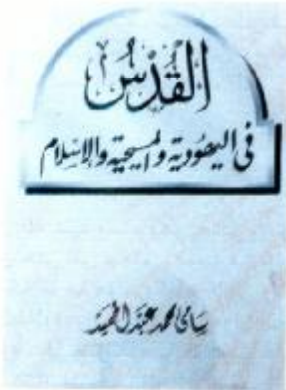 القُدْسُ
في اليهودية والمسيحية والإسلام
سامي محمد عبد الحميد